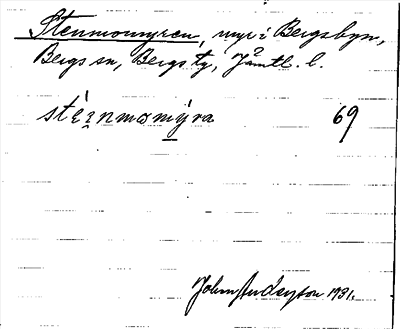 Stenmomyren, myr i Bergsbyn,
Bergs sn, Bergs tg, Jämtl. l.
stẹ́ṇnmomýra 69
John Anderson 1931.